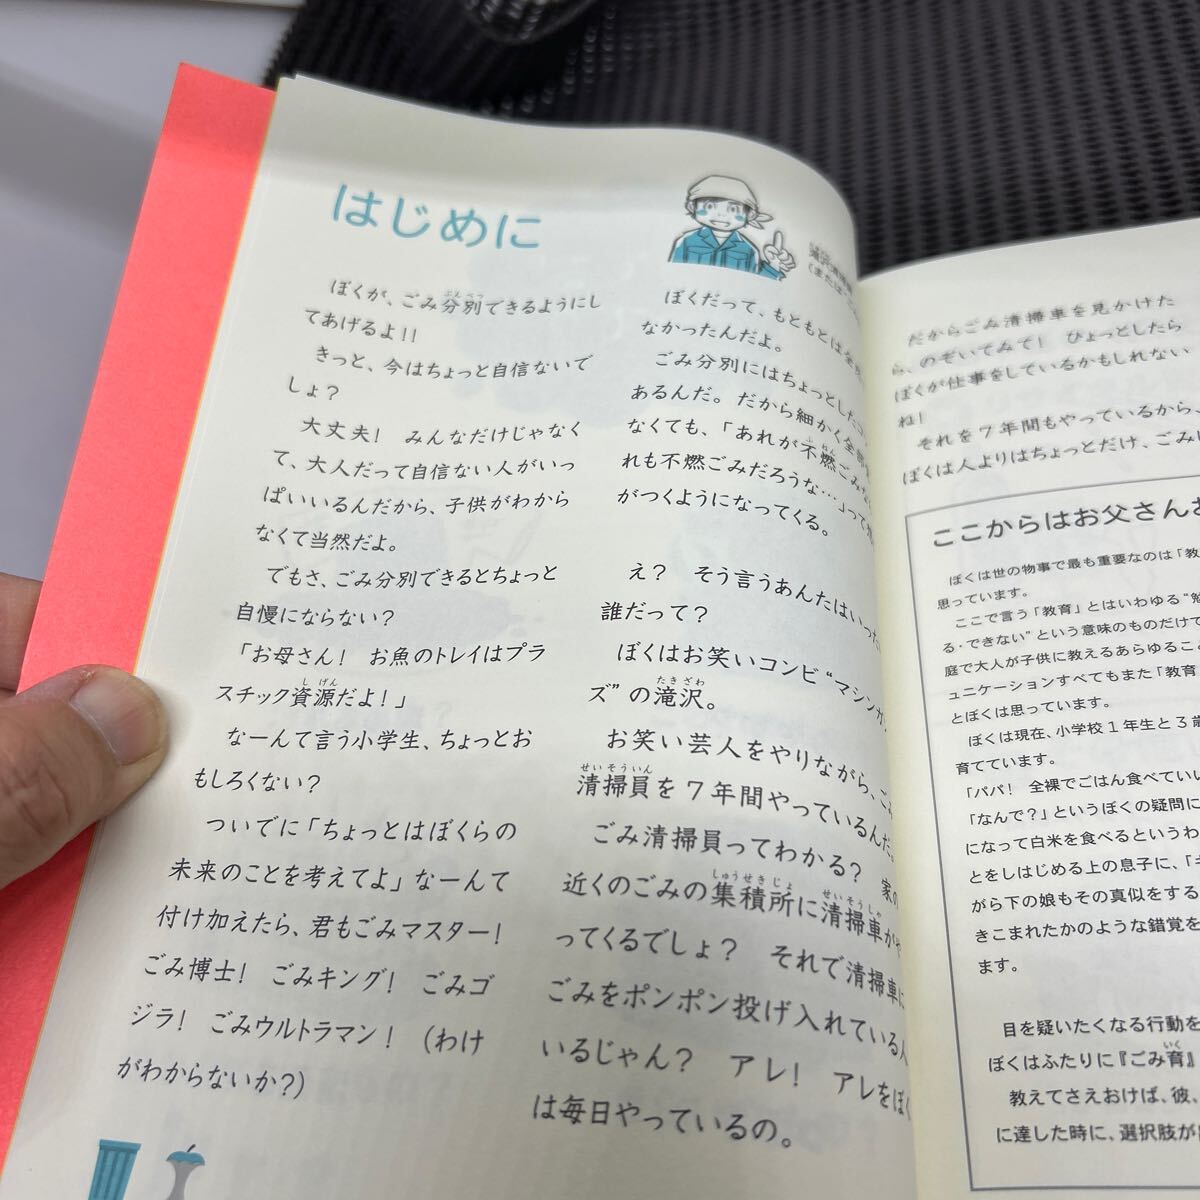 はじめに
ぼくが、ごみ分別できるようにし
てあげるよ!!
きっと、今はちょっと自信ないで
しょ?
大丈夫! みんなだけじゃなく
て、大人だって自信ない人がいっ
ぱいいるんだから、子供がわから
なくて当然だよ。
でもさ、ごみ分別できるとちょっと
自慢にならない?
「お母さん! お魚のトレイはプラ
スチック資源だよ!」
なーんて言う小学生、ちょっとお
もしろくない?
ついでに「ちょっとはぼくらの
未来のことを考えてよ」なーんて
付け加えたら、君もごみマスター!
ごみ博士! ごみキング! ごみゴ
ジラ! ごみウルトラマン! (わけ
がわからないか?)
ぼくだって、もともとは全
なかったんだよ。
ごみ分別にはちょっとしたコ
あるんだ。だから細かく全部
なくても、「あれが不燃ごみ
れも不燃ごみだろうな…」って
がつくようになってくる。
え? そう言うあんたはいった
誰だって?
ぼくはお笑いコンビ“マシンガ
ズ”の滝沢。
お笑い芸人をやりながら、ごみ
清掃員を7年間やっているんだ。
ごみ清掃員ってわかる? 家の
近くのごみの集積所に清掃車がや
ってくるでしょ? それで清掃車に
ごみをポンポン投げ入れている人
いるじゃん? アレ! アレをぼく
は毎日やっているの。
だからごみ清掃車を見かけた
ら、のぞいてみて! ひょっとしたら
ぼくが仕事をしているかもしれない
ね!
それを7年間もやっているから、
ぼくは人よりはちょっとだけ、ごみに
ここからはお父さんお
ぼくは世の物事で最も重要なのは「教
思っています。
ここで言う「教育」とはいわゆる“勉
る・できない”という意味のものだけで
庭で大人が子供に教えるあらゆるこ
ュニケーションすべてもまた「教育
とぼくは思っています。
ぼくは現在、小学校1年生と3歳
育てています。
「パパ! 全裸でごはん食べていい
「なんで?」というぼくの疑問に
になって白米を食べるというわ
とをしはじめる上の息子に、「キ
がら下の娘もその真似をする
きこまれたかのような錯覚を
ます。
目を疑いたくなる行動を
ぼくはふたりに『ごみ育』
教えてさえおけば、彼、
に達した時に、選択肢が